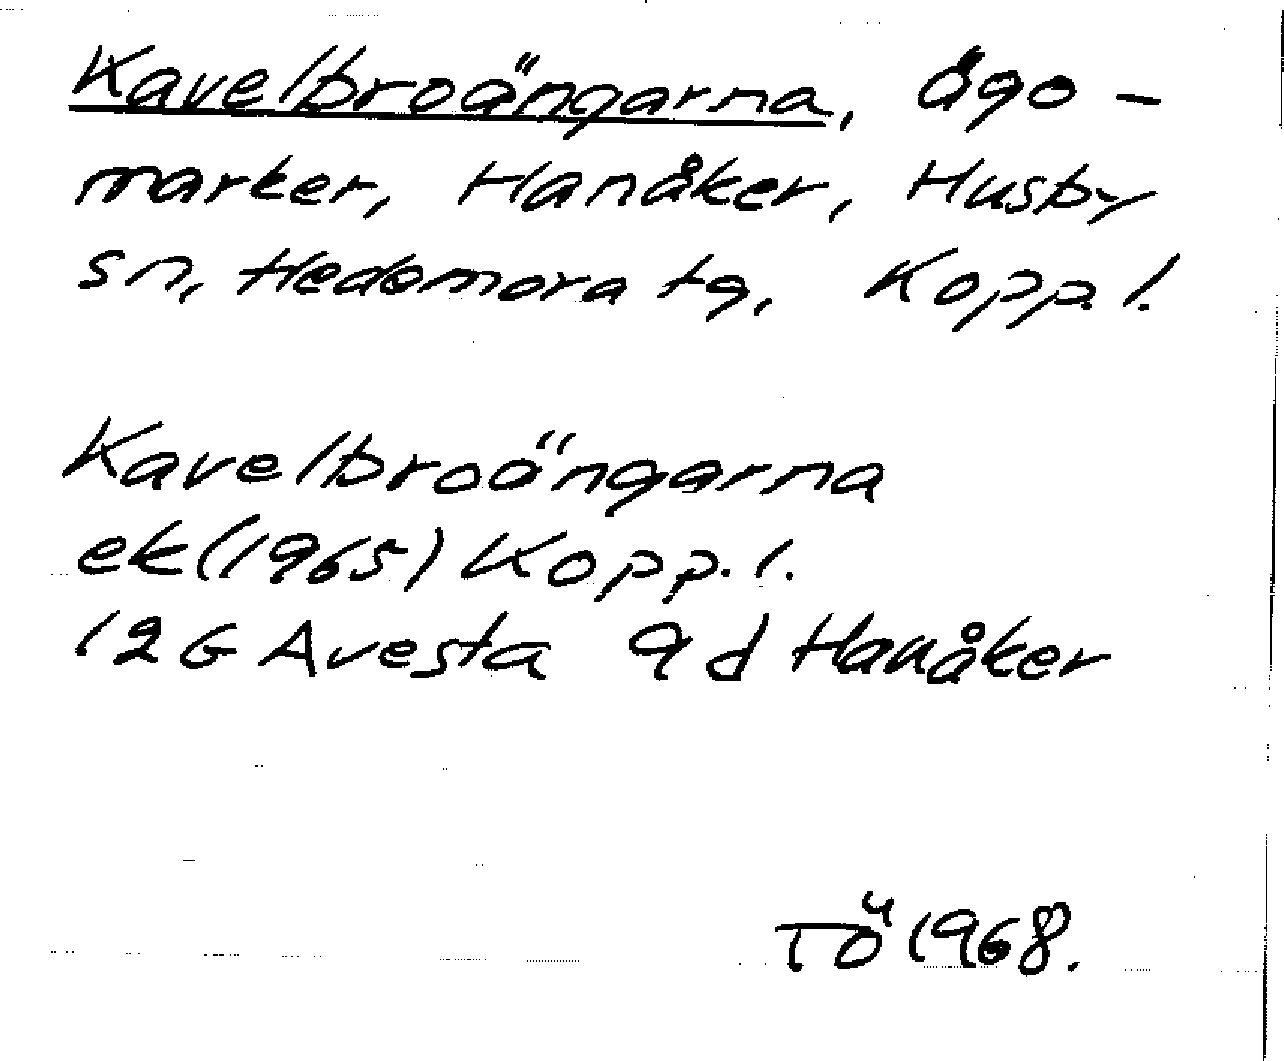 Kavelbroängarna, ägo-
marker, Hanåker, Husby
sn, Hedemora tg, Kopp. l.
Kavelbroängarna
ek (1965) Kopp. l.
12G Avesta 9d Hanåker
TÖ 1968.